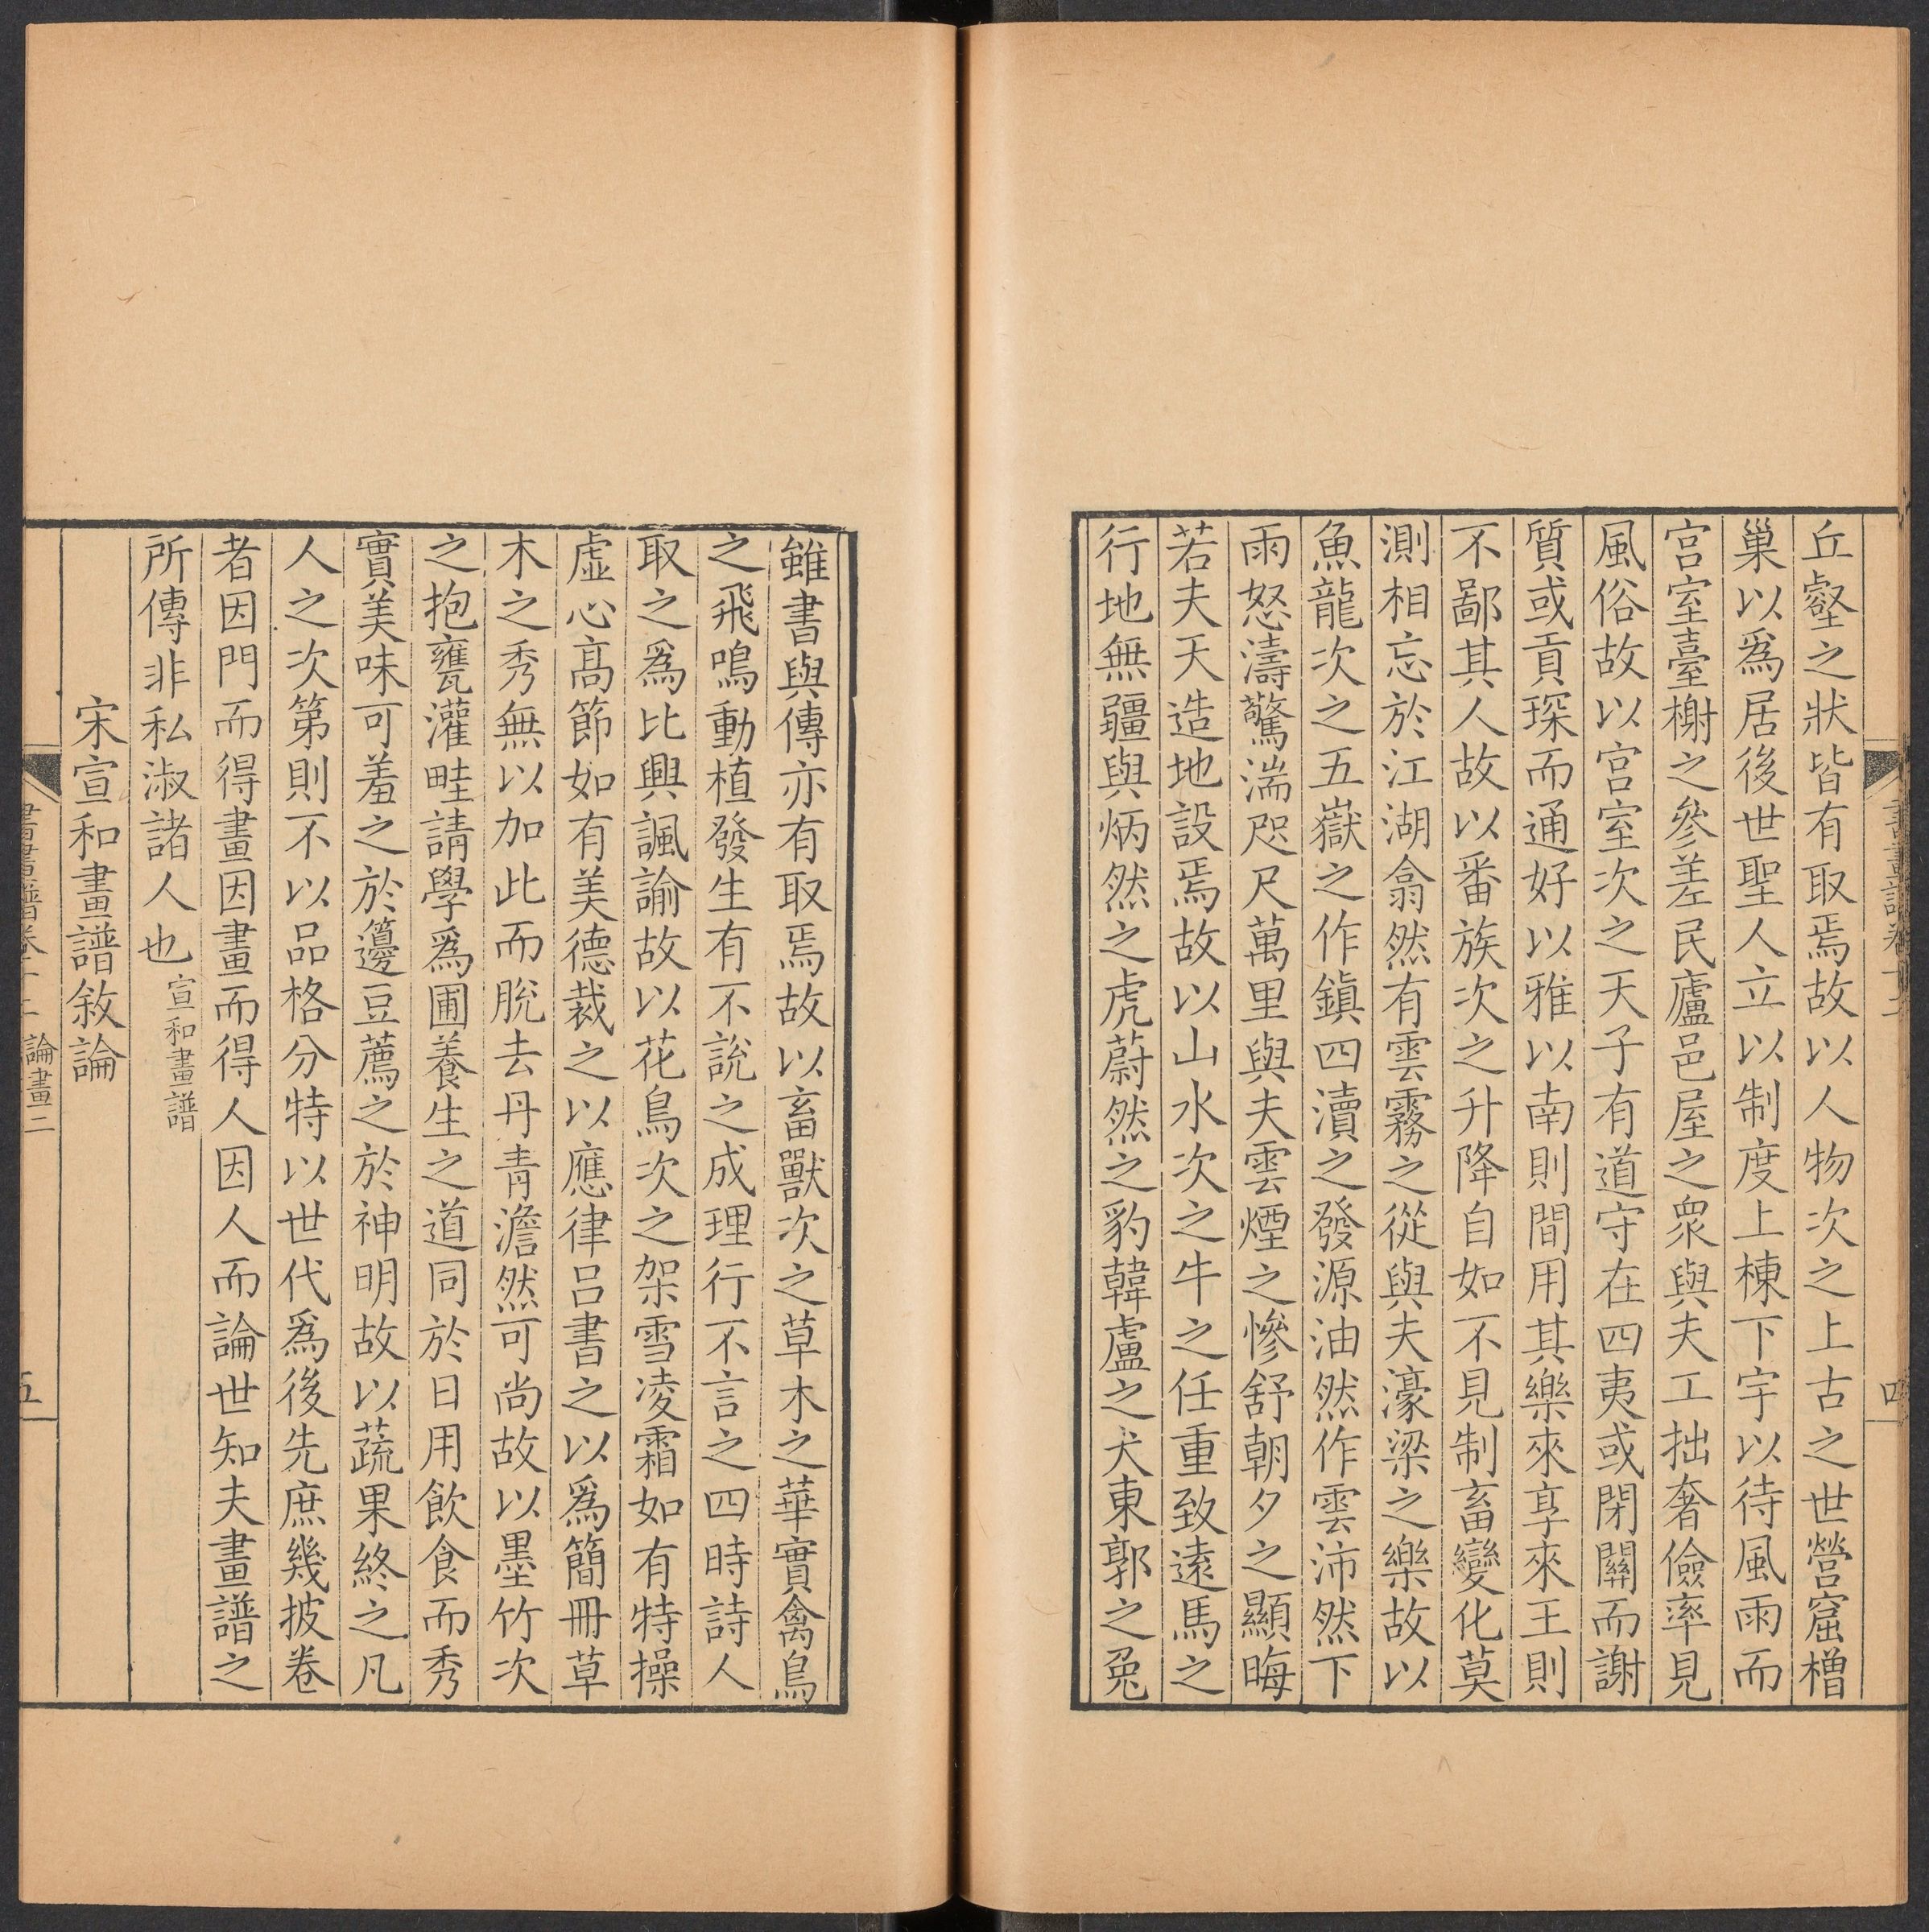 丘壑之狀皆有取焉故以人物次之上古之世營窟橧
巢以爲居後世聖人立以制度上棟下宇以待風雨而
宮室臺榭之參差民廬邑屋之眾與夫工拙奢儉率見
風俗故以宮室次之天子有道守在四夷或閉關而謝
質或貢琛而通好以雅以南則間用其樂來享來王則
不鄙其人故以番族次之升降自如不見制畜變化莫
測相忘於江湖翕然有雲霧之從與夫濠梁之樂故以
魚龍次之五嶽之作鎮四瀆之發源油然作雲沛然下
雨怒濤驚湍咫尺萬里與夫雲煙之慘舒朝夕之顯晦
若夫天造地設焉故以山水次之牛之任重致遠馬之
行地無疆與炳然之虎蔚然之豹韓盧之犬東郭之兔
雖書與傳亦有取焉故以畜獸次之草木之華實禽鳥
之飛鳴動植發生有不說之成理行不言之四時詩人
取之爲比興諷諭故以花鳥次之架雪凌霜如有特操
虛心高節如有美德裁之以應律呂書之以爲簡冊草
木之秀無以加此而脫去丹青澹然可尚故以墨竹次
之抱甕灌畦請學爲圃養生之道同於日用飲食而秀
實美味可羞之於籩豆薦之於神明故以蔬果終之凡
人之次第則不以品格分特以世代爲後先庶幾披卷
者因門而得畫因畫而得人因人而論世知夫畫譜之
所傳非私淑諸人也 宣和畫譜
宋宣和畫譜敘論
書畫譜卷十二 論畫二
五